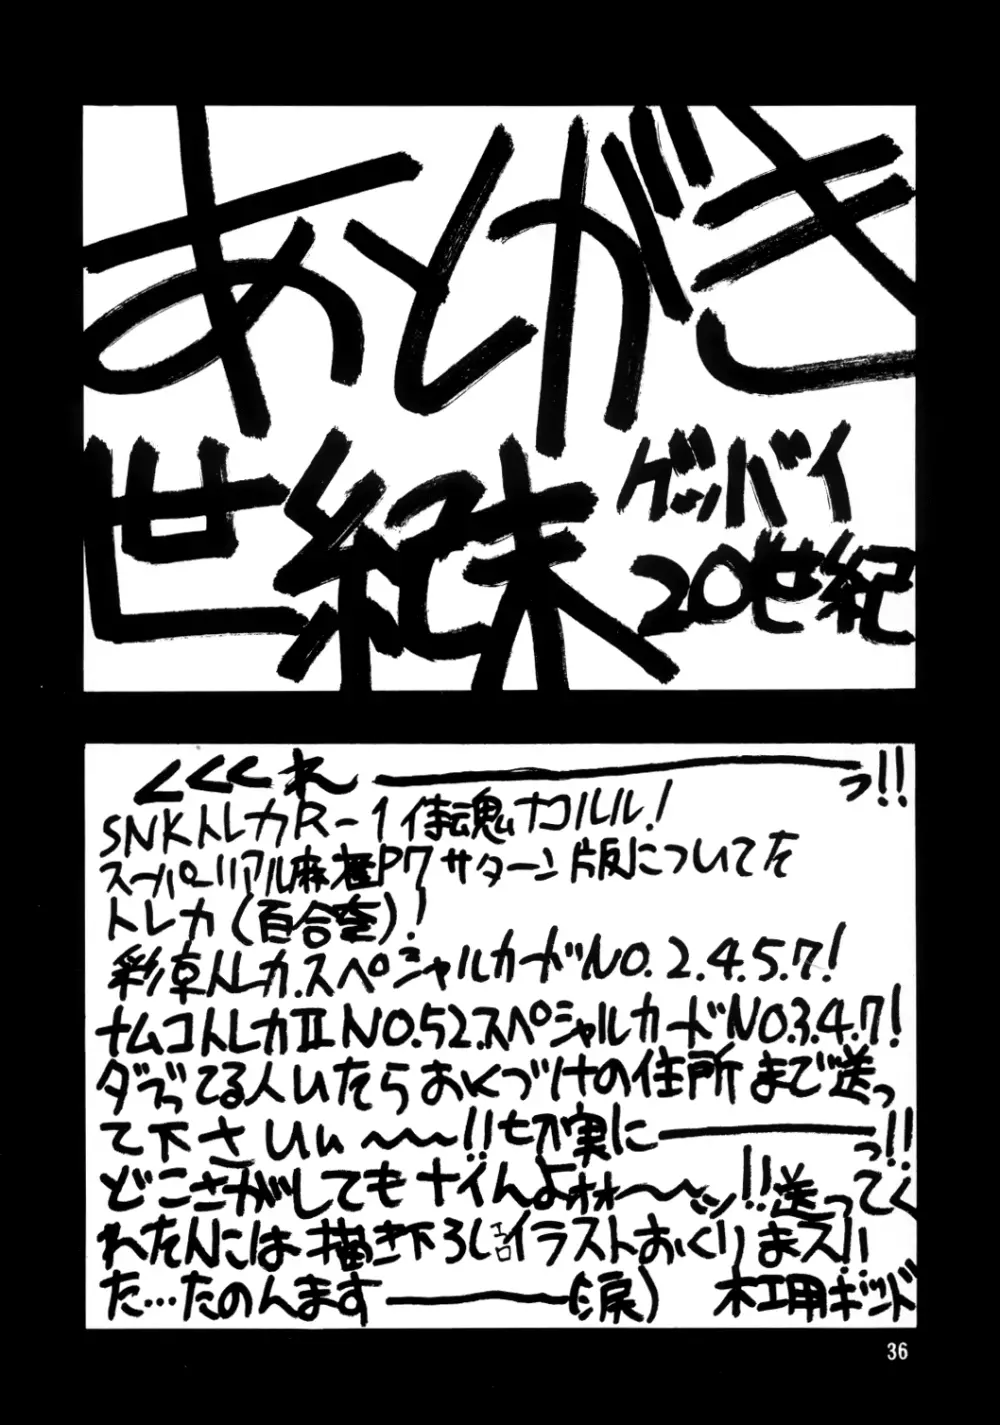 あとがき
世紀末
グッバイ
20世紀
くくくれ――――っ!!
SNKトレカR-1侍魂ナコルル!
スーパーリアル麻雀P7サターン版についてた
トレカ(百合奎)!
彩京トレカ.スペシャルカードNO.2.4.5.7!
ナムコトレカⅡNO.52.スペシャルカードNO3.4.7!
ダブってる人いたらおくづけの住所まで送っ
て下さいぃ〜〜〜!!切実に――――っ!!
どこさがしてもナイんよォォ〜〜ッ!!送ってく
れた人には描き下ろしエロイラストおくりまス!!
た…たのんます――――(涙) 木工用ボンド
36